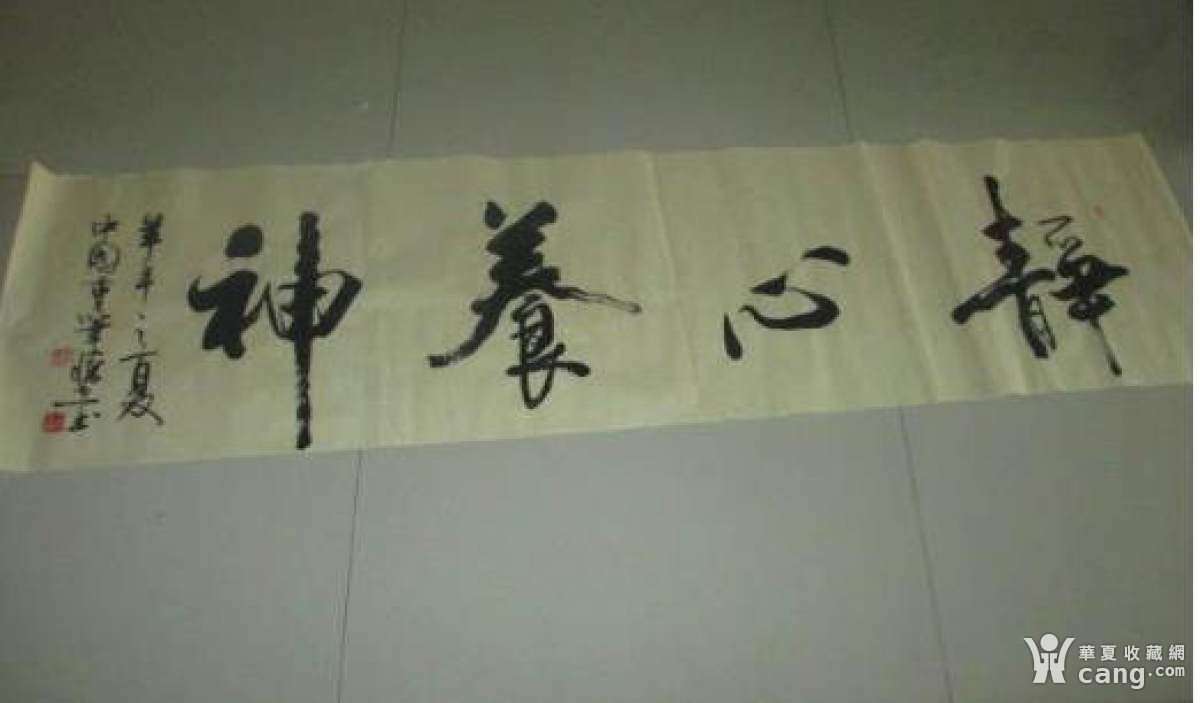 靜心養神
之夏
中國
華夏收藏網
cang.com